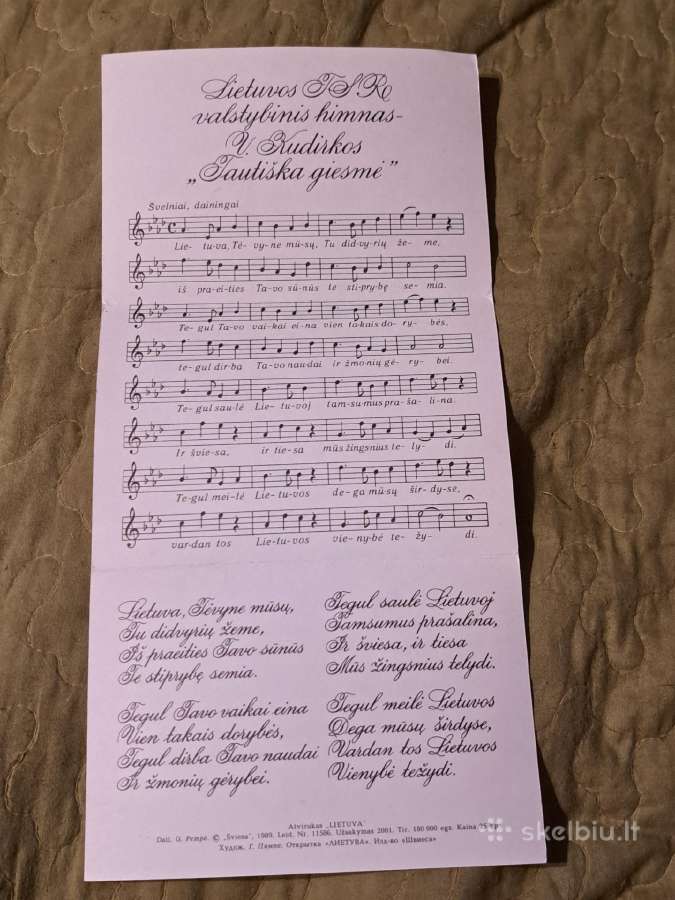 Lietuvos TSR
valstybinis himnas-
V. Kudirkos
„Tautiška giesmė”
Švelniai, dainingai
Lie- tu-va, Tė- vy-ne mū-sų, Tu did-vy-rių že- me,
iš pra-ei-ties Ta-vo sū-nūs te stip-ry-bę se-mia.
Te-gul Ta-vo vai-kai ei-na vien ta-kais do-ry- bės,
te-gul dir-ba Ta-vo nau-dai ir žmo-nių gė-ry- bei.
Te-gul sau-lė Lie-tu-voj tam-su-mus pra-ša- li-na.
Ir švie-sa, ir tie-sa mūs žings-nius te-ly- di.
Te-gul mei-lė Lie-tu-vos de-ga mū-sų šir-dy-se,
var-dan tos Lie-tu-vos vie-ny-bė te-žy- di.
Lietuva, Tėvyne mūsų,
Tu didvyrių žeme,
Iš praeities Tavo sūnūs
Te stiprybę semia.
Tegul Tavo vaikai eina
Vien takais dorybės,
Tegul dirba Tavo naudai
Ir žmonių gėrybei.
Tegul saulė Lietuvoj
Tamsumus prašalina,
Ir šviesa, ir tiesa
Mūs žingsnius telydi.
Tegul meilė Lietuvos
Dega mūsų širdyse,
Vardan tos Lietuvos
Vienybė težydi.
Atvirukas „LIETUVA”
Dail. G. Pempė. © „Šviesa”, 1989. Leid. Nr. 11586. Užsakymas 2001. Tir. 180 000 egz. Kaina
Худож. Г. Пэмпе. Открытка «ЛИЕТУВА». Изд-во «Швиеса»
skelbiu.lt